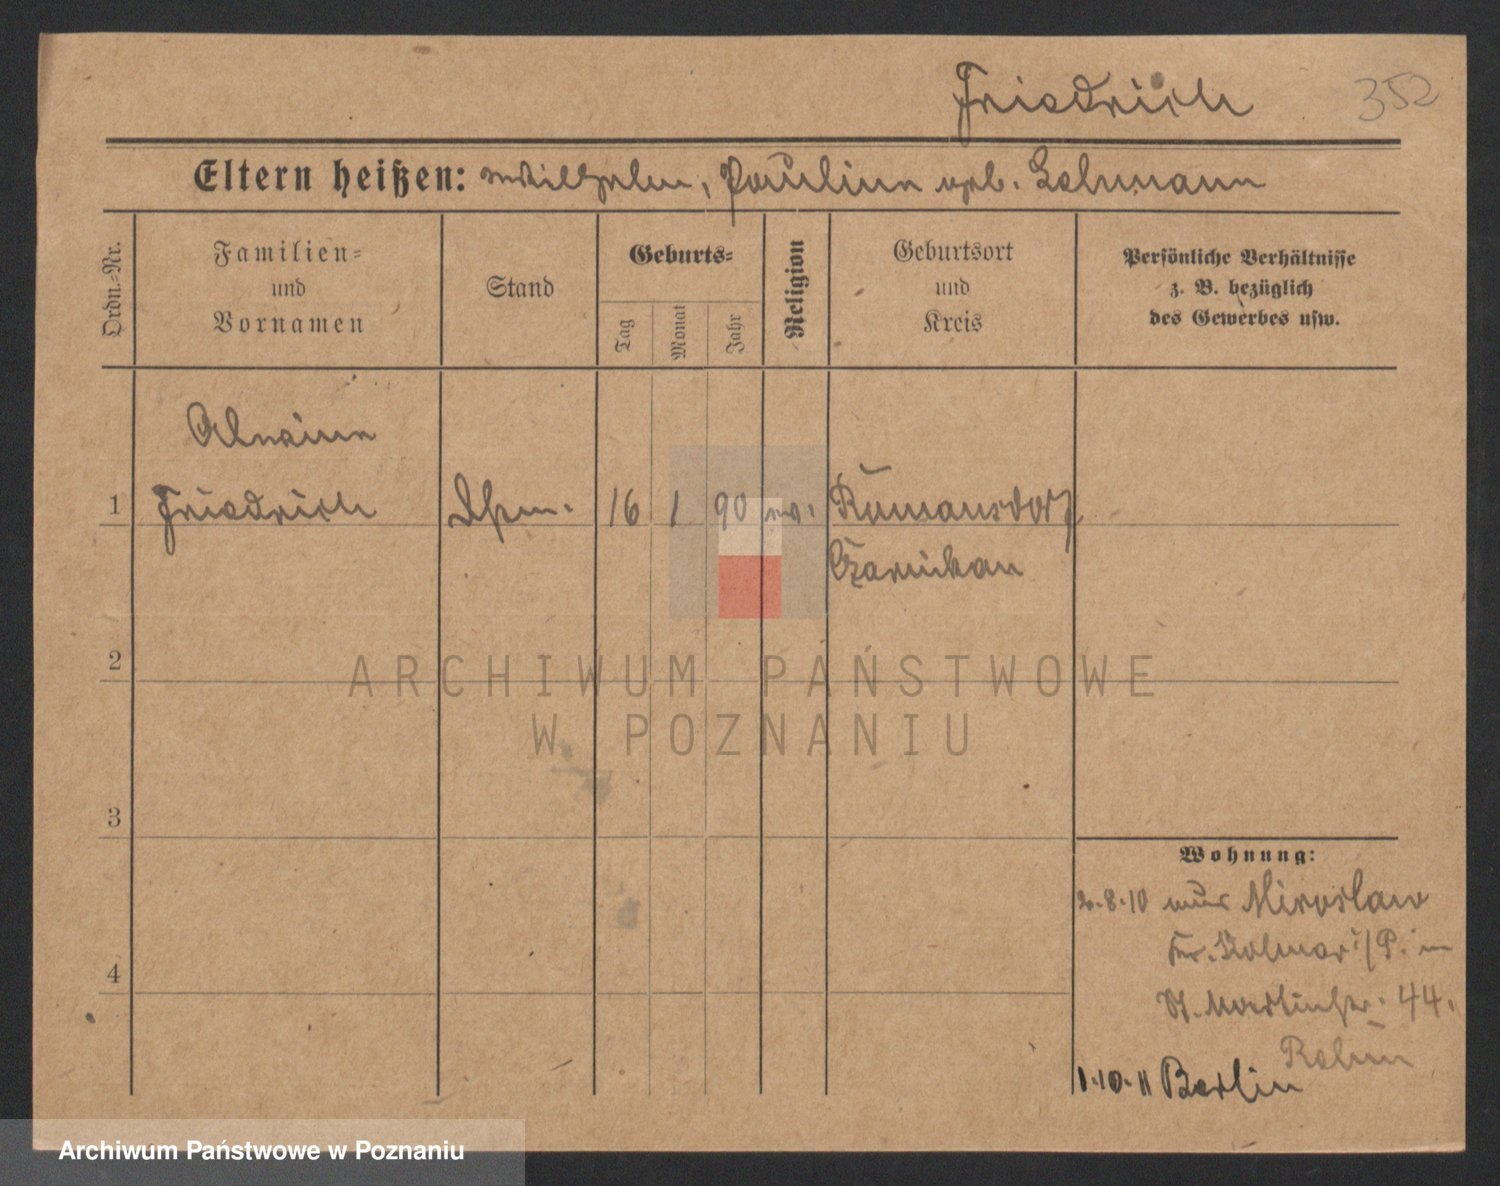 Friedrich 352
Eltern heißen: Wilhelm, Pauline geb. Lehmann
Ordn.-Nr.
Familien-
und
Vornamen
Stand
Geburts-
Tag
Monat
Jahr
Religion
Geburtsort
und
Kreis
Persönliche Verhältnisse
z. B. bezüglich
des Gewerbes usw.
1 Friedrich 16 1 90 ev. Romansdorf
Czarnikau
2
ARCHIWUM PAŃSTWOWE
W POZNANIU
3
Wohnung:
2.8.10 aus Miroslaw
Kr. Kolmar i/P. in
St. Martinstr. 44.
4
1.10.11 Berlin
Archiwum Państwowe w Poznaniu